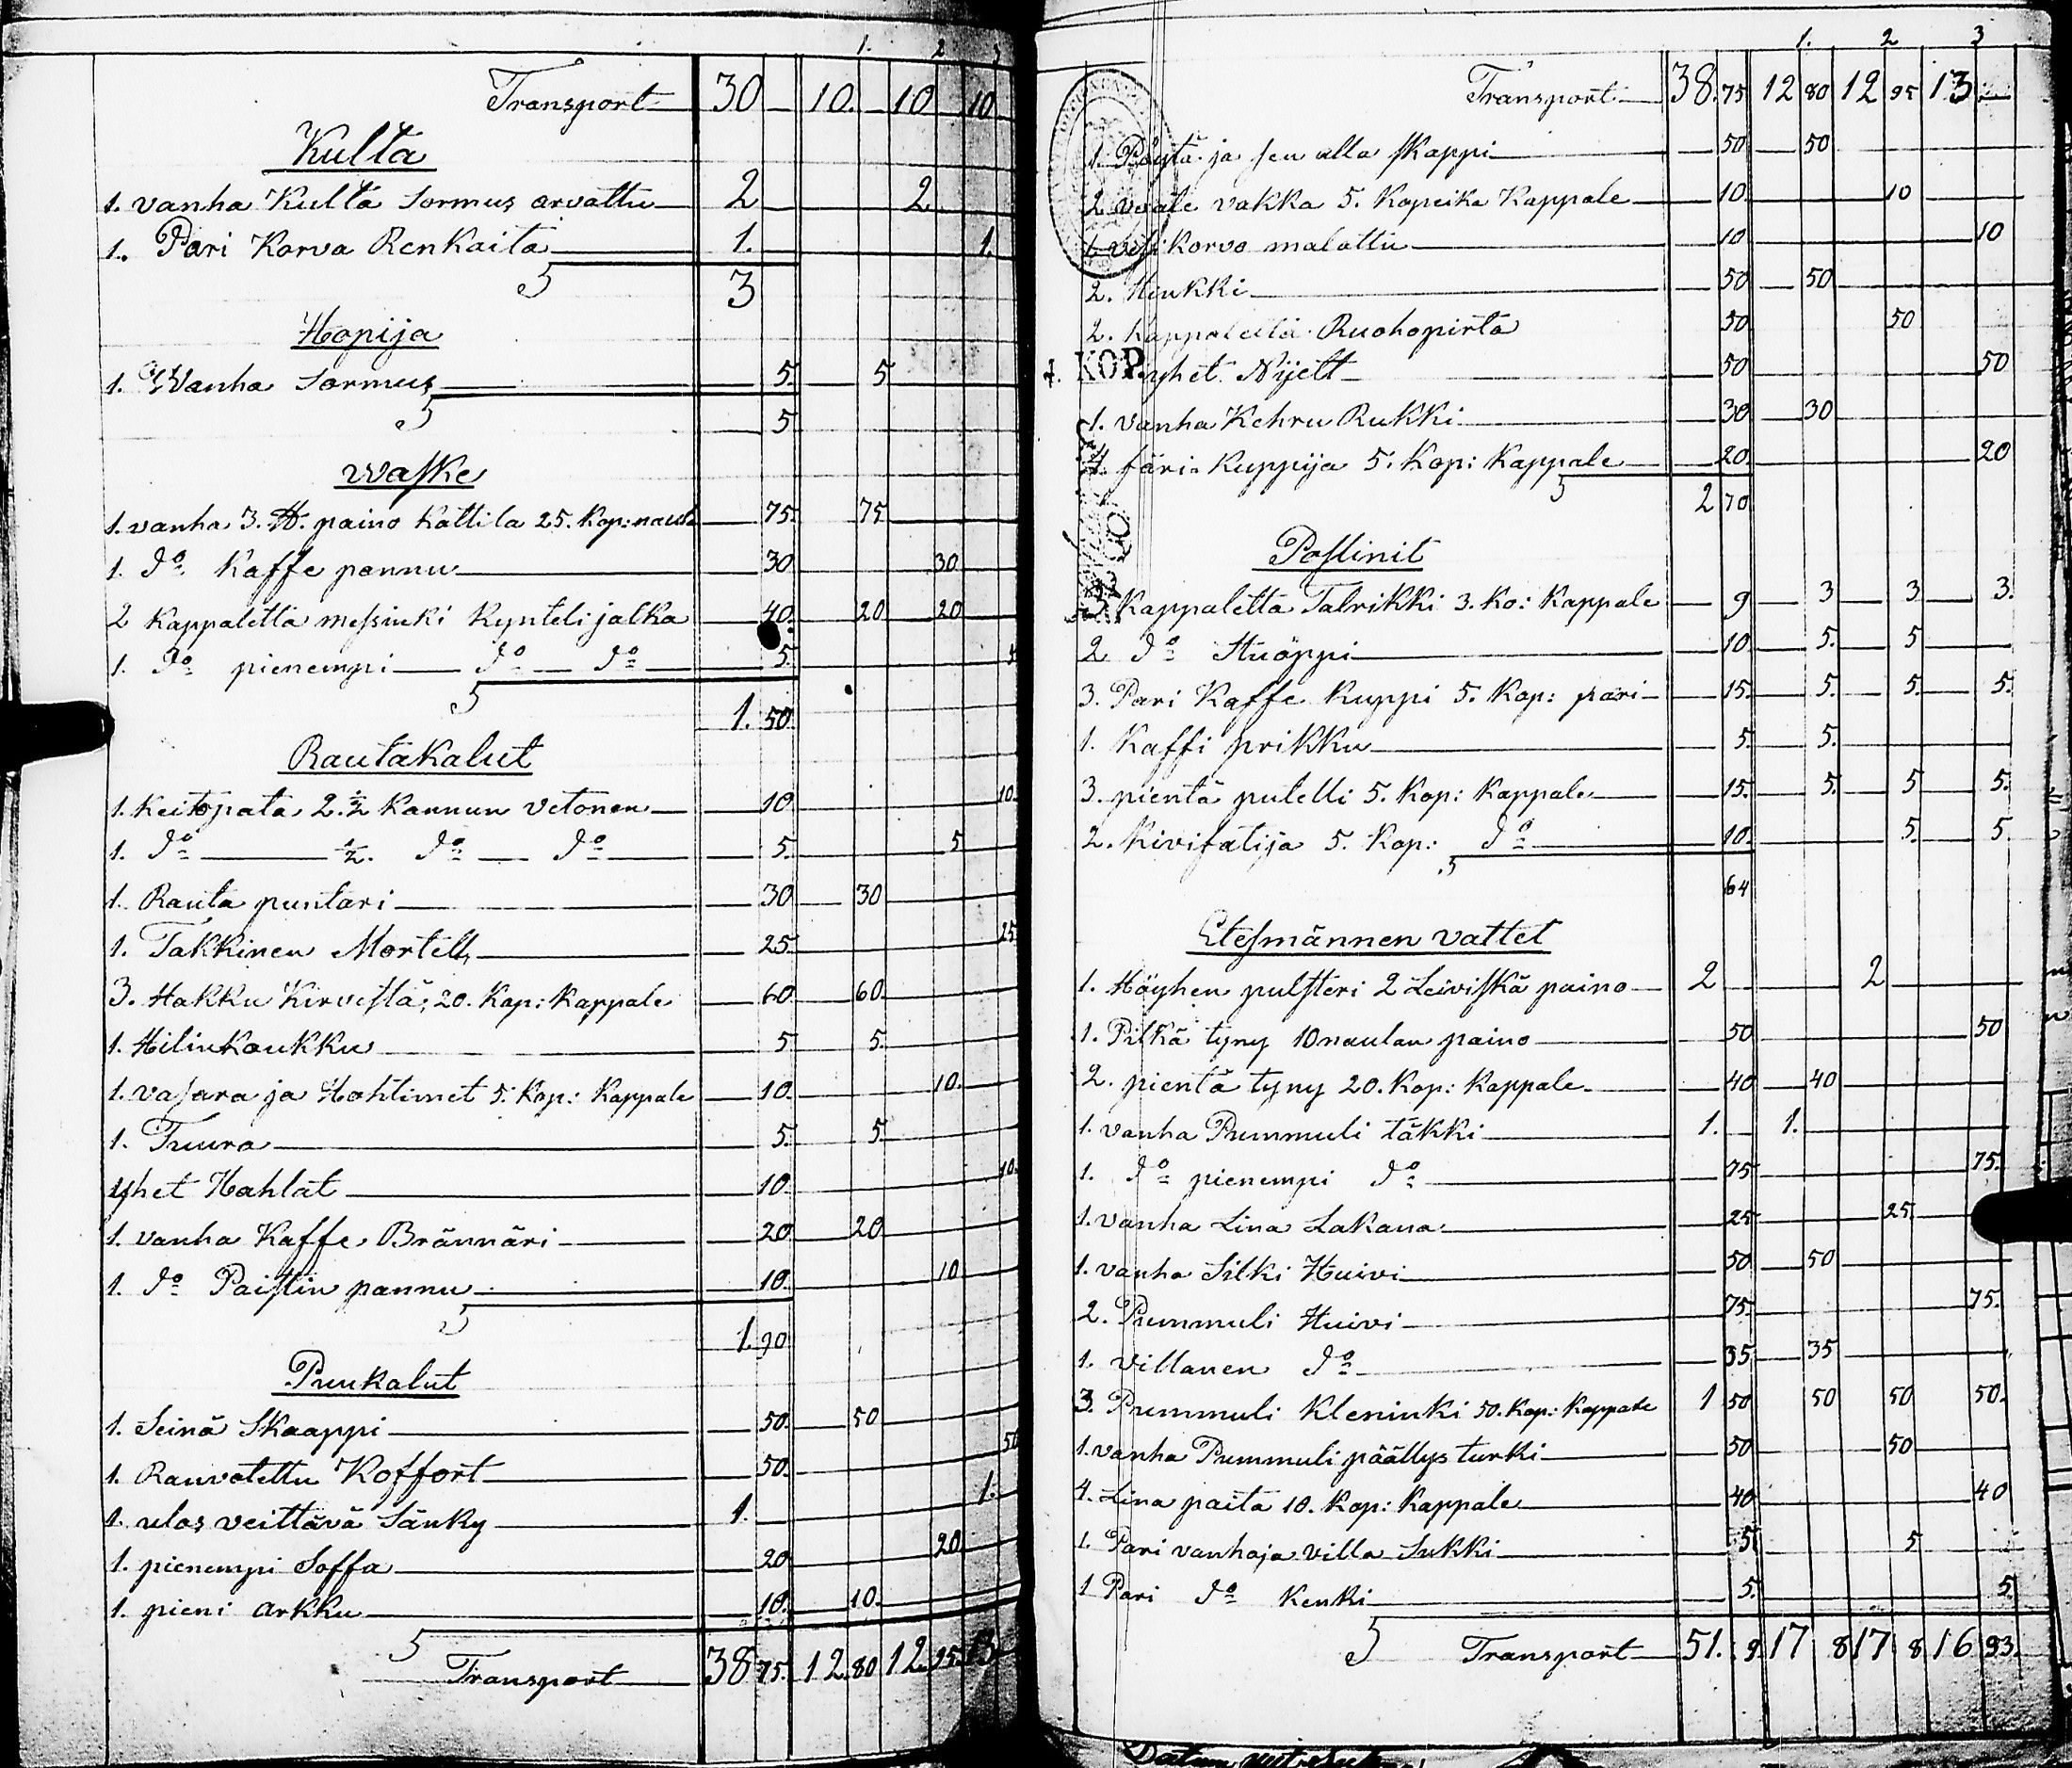 1. 2 3
Transport 30 10. 10 10
Kulta
1. vanha Kulta Sormus arvattu 2 2
1. Pari Korva Renkaita 1. 1.
3
Hopija
1. Wanha Sormus 5 5
5
Waske
1. vanha 3. ℔. paino Kattila 25. Kop: naula 75. 75
1. do Kaffe pannu 30 30
2 Kappaletta messinki Kynteli jalka 40. 20 20
1. do pienempi do do 5 5
1. 50
Rautakalut
1. Keitopata 2. ½ Kannun Vetonen 10 10.
1. do ½. do do 5 5
1. Rauta puntari 30 30
1. Takkinen Mortell 25 25
3. Hakku Kirvestä; 20. Kop: Kappale 60 60
1. Hilinkoukku 5 5.
1. vasara ja Hohtimet 5. Kop: Kappale 10. 10.
1. Tuura 5. 5.
yhet Hahlat 10. 10.
1. vanha Kaffe Brännäri 20 20
1. do Paistin pannu 10. 10
1. 90
Puukalut
1. Seinä Skaappi 50. 50
1. Rauvotettu Koffort 50. 50
1. ulos veittävä Sänky 1. 1.
1. pienempi Soffa 20 20
1. pieni arkku 10. 10.
Transport 38 75. 12 80 12 95 13
1. 2 3
Transport 38. 75 12 80 12 95 13
1. Pöytä ja sen alla skappi 50 50
2 vakka 5. Kopeika Kappale 10 10
vesi korvo malattu 10 10
2. Kiukki 50 50
2. kappaletta Ruohopirta 50 50
KOP.
yhet Nijelt 50 50
1. vanha Kehru Rukki 30 30
4. färi Kuppija 5. Kop: Kappale 20 20
2 70
Poslinit
3 Kappaletta Talrikki 3. Ko: Kappale 9 3 3 3.
2 do Stuöppi 10 5. 5
3. Pari Kaffe Kuppi 5. Kop: pari 15. 5. 5. 5.
1. Kaffi prikku 5. 5.
3. pientä putelli 5. Kop: Kappale 15. 5. 5 5.
2. Kivifatija 5. Kop: do 10. 5. 5.
64
Etesmännen vattet
1. Höyhen pulsteri 2 Leiviskä paino 2 2
1. Pitkä tyny 10 naulan paino 50 50
2. pientä tyny 20. Kop: Kappale 40 40
1. vanha Pummuli täkki 1. 1.
1. do pienempi do 75 75.
1. vanha Lina Lakana 25 25
1. vanha Silki Huivi 50 50
2. Pummuli Huivi 75 75.
1. villanen do 35 35
3. Pummuli Kleninki 50. Kop: Kappale 1 50 50 50 50.
1. vanha Pummuli päällys turki 50 50
4. Lina paita 10. Kop: Kappale 40 40
1. Pari vanhoja villa Sukki 5 5
1 Pari do Kenki 5. 5.
Transport 51. 9. 17 8 17 8 16 93.